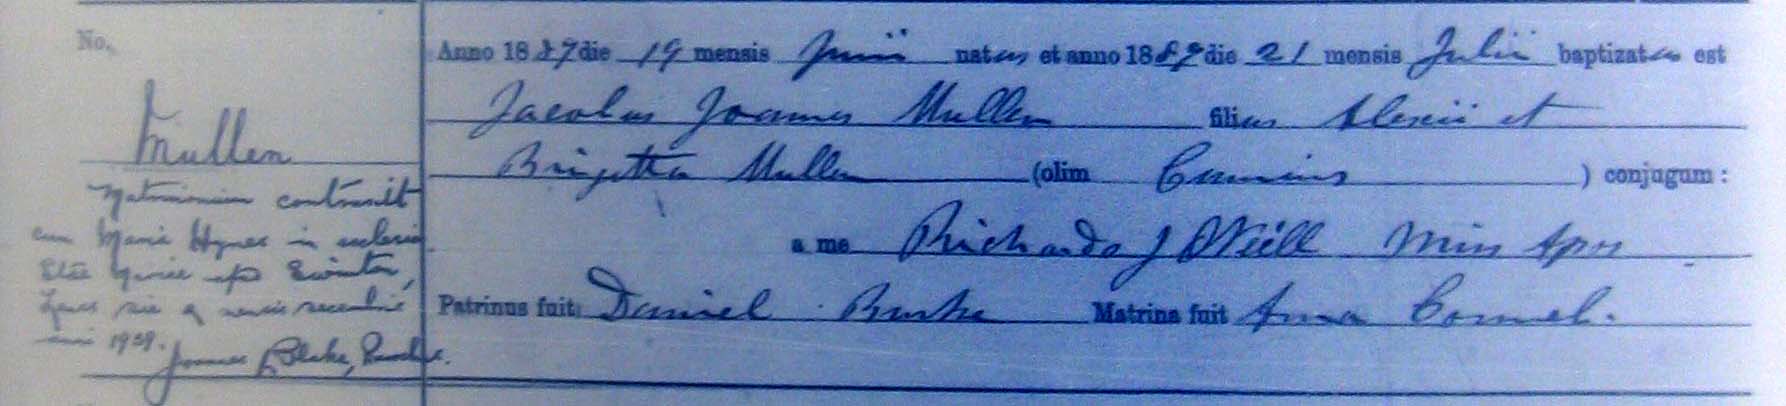 No.
Mullen
Matrimonium contraxit
cum Maria Hynes in ecclesia
Stae Mariae Swinton,
die 9 mensis
1939.
Joannes Blake,
Anno 1887 die 19 mensis Junii natus et anno 1887 die 21 mensis Julii baptizatus est
Jacobus Joannes Mullen filius Alexii et
Brigitta Mullen (olim Cummins ) conjugum :
a me Richardo J O'Neill Miss Apos
Patrinus fuit Daniel Burke Matrina fuit Anna